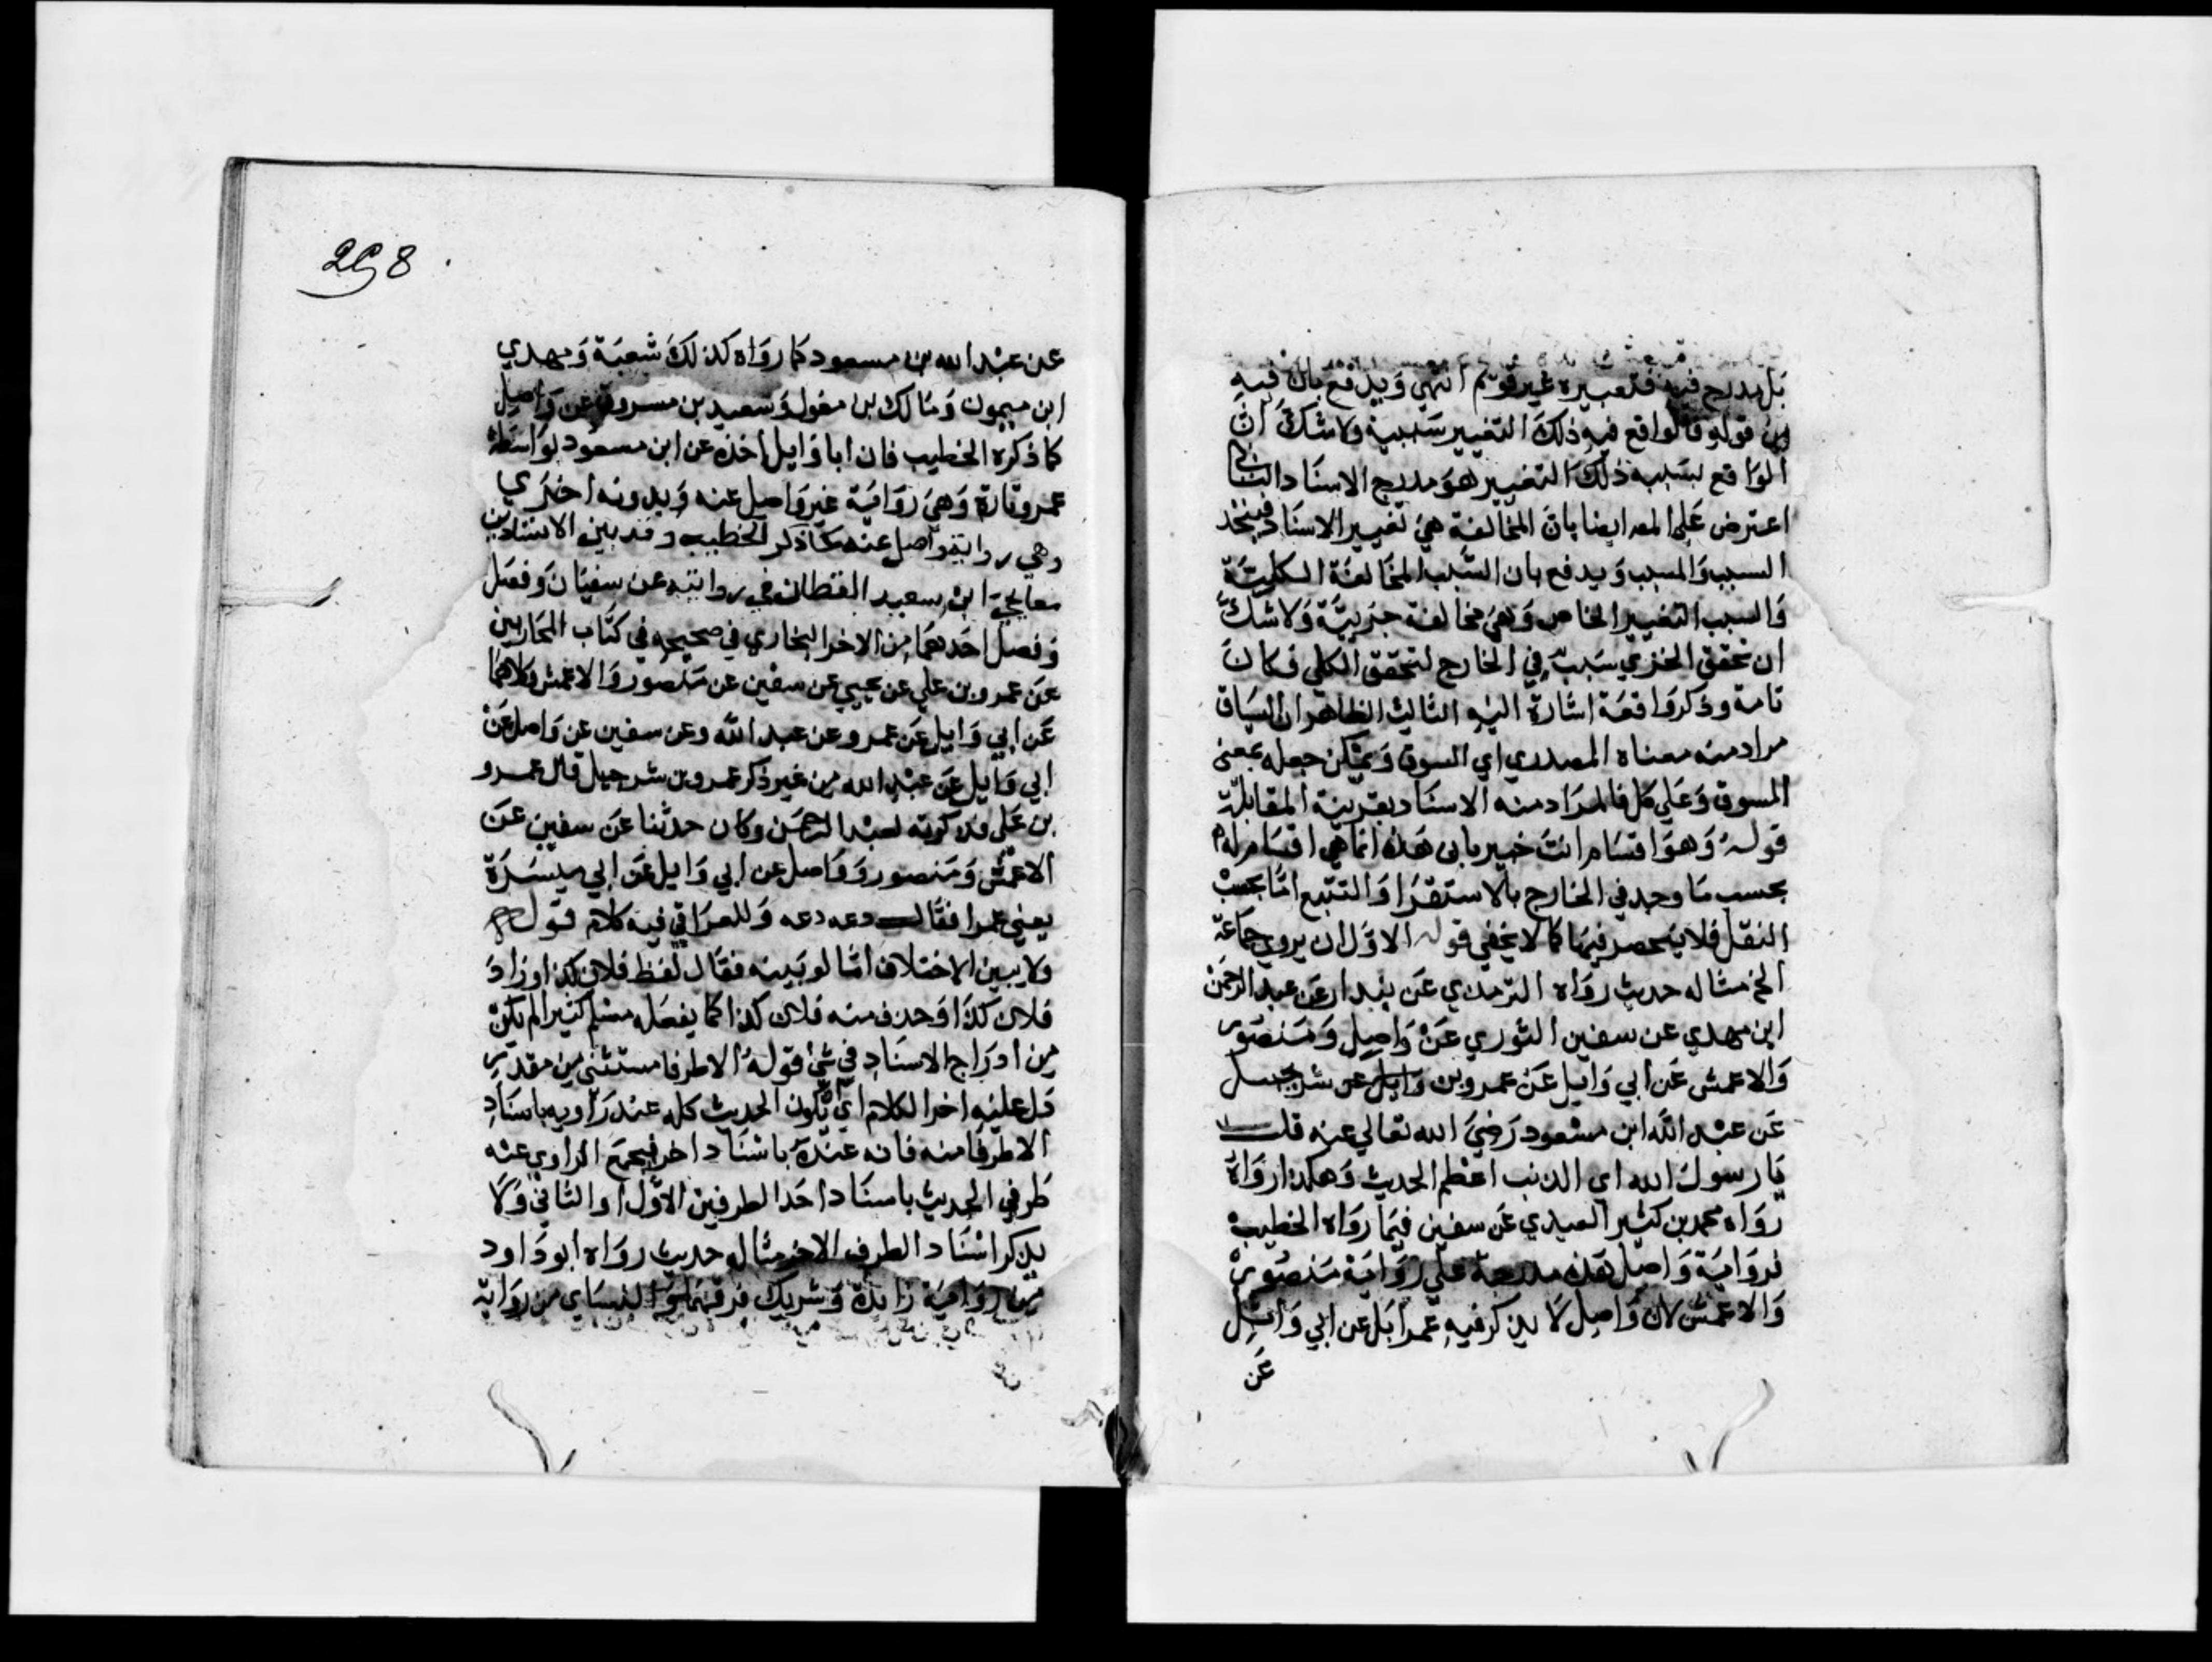 بل يدرج فيه فتعبيره غير قويم انتهي ويدفع بان فيه
من قوله فالواقع فيه ذلك التغيير سببية ولا شك ان
الواقع بسببه ذلك التغيير هو مدرج الاسناد الثاني
اعترض على المص ايضا بان المخالفة هي تغيير الاسناد فيتخذ
السبب والمسبب ويدفع بان السبب المخالفة الكلية
والسبب التغيير الخاص وهي مخالفة جزيية ولا شك
ان تحقق الجزي سبب في الخارج لتحقق الكلي فكان
تامة وذكر واقعة اشارة اليه الثالث الظاهر ان السياق
مراد منه معناه المصدري اي السوق ويمكن جعله بمعنى
المسوق وعلي كل فالمراد منه الاسناد بقرينة المقابلة
قوله وهو اقسام انت خبير بان هذه انما هي اقسام له
بحسب ما وجد في الخارج بالاستقرا والتتبع اما بحسب
النقل فلا ينحصر فيها كما لا يخفي قوله الاول ان يروي جماعة
الخ مثاله حديث رواه الترمذي عن بندار عن عبد الرحمن
ابن مهدي عن سفين الثوري عن واصل ومنصور
والاعمش عن ابي وايل عن عمرو بن وايل عن شرجيل
عن عبد الله ابن مسعود رضي الله تعالي عنه قلت
يا رسول الله اي الذنب اعظم الحديث وهكذا رواه
رواه محمد بن كثير العبدي عن سفين فيما رواه الخطيب
فرواية واصل هذه مدرجة علي رواية منصور
والاعمش لان واصل لا يذكر فيه عمرا بل عن ابي وائل
عن
298
عن عبد الله بن مسعود كما رواه كذلك شعبة ومهدي
ابن ميمون ومالك بن مغول وسعيد بن مسروق عن واصل
كما ذكره الخطيب فان ابا وايل اخذه عن ابن مسعود بواسطة
عمرو تارة وهي رواية غير واصل عنه وبدونه اخري
وهي رواية واصل عنه كما ذكر الخطيب وقد بين الاسنادين
معا يحي ابن سعيد القطان في روايته عن سفيان وفصل
وفصل احدهما من الاخر البخاري في صحيحه في كتاب المحاربين
عن عمرو بن علي عن يحيي عن سفين عن منصور والاعمش كلاهما
عن ابي وايل عن عمرو عن عبد الله وعن سفين عن واصل عن
ابي وايل عن عبد الله من غير ذكر عمرو بن شرجيل قال عمرو
بن علي فذكرته لعبد الرحمن وكان حدثنا عن سفين عن
الاعمش ومنصور وواصل عن ابي وايل عن ابي ميسرة
يعني عمرا فقال دعه دعه وللعراقي فيه كلام قوله
ولا يبين الاختلاف اما لو بينه فقال لفظ فلان كذا وزاد
فلان كذا وحذف منه فلان كذا كما يفعله مسلم كثيرا لم يكن
من ادراج الاسناد في شي قوله الا طرفا مستثنى من مقدر
دل عليه اخر الكلام اي يكون الحديث كله عند راويه باسناد
الا طرفا منه فانه عنده باسناد اخر فيجمع الراوي عنه
طرفي الحديث باسناد احد الطرفين الاول او الثاني ولا
يذكر اسناد الطرف الاخر مثاله حديث رواه ابو داود
من رواية زائدة وشريك فرقهما والنساي من رواية